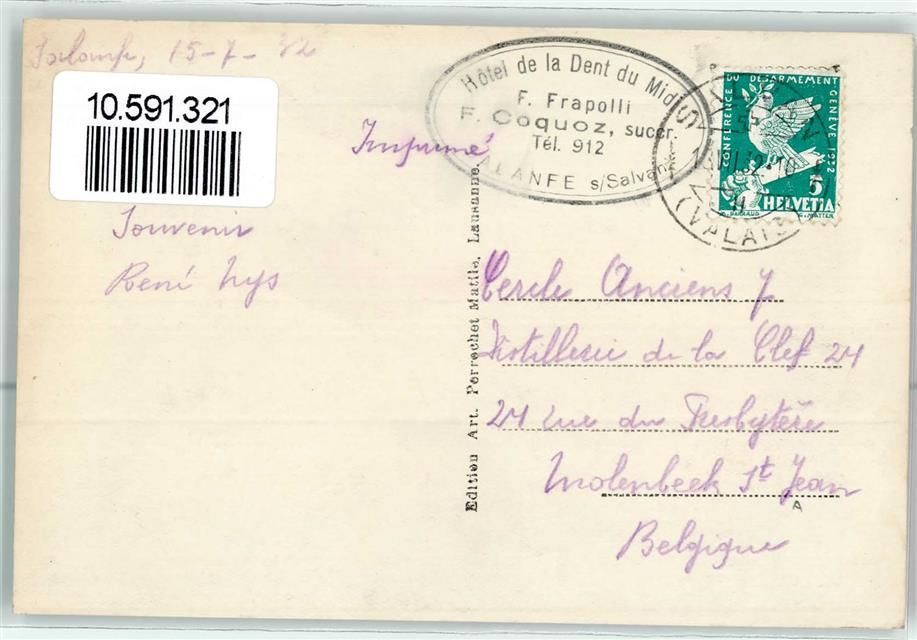 Salanfe, 15-7-32
10.591.321
Imprimé
Souvenir
René Nys
Hôtel de la Dent du Midi
F. Frapolli
F. Coquoz, succr.
Tél. 912
LANFE s/Salvan
CONFÉRENCE DU DÉSARMEMENT GENÈVE 1932
5
HELVETIA
(VALAIS)
Edition Art. Perrochet Matile, Lausanne.
Cercle Anciens 7
Distillerie de la Clef 24
24 rue du Presbytère
Molenbeek St Jean
A
Belgique